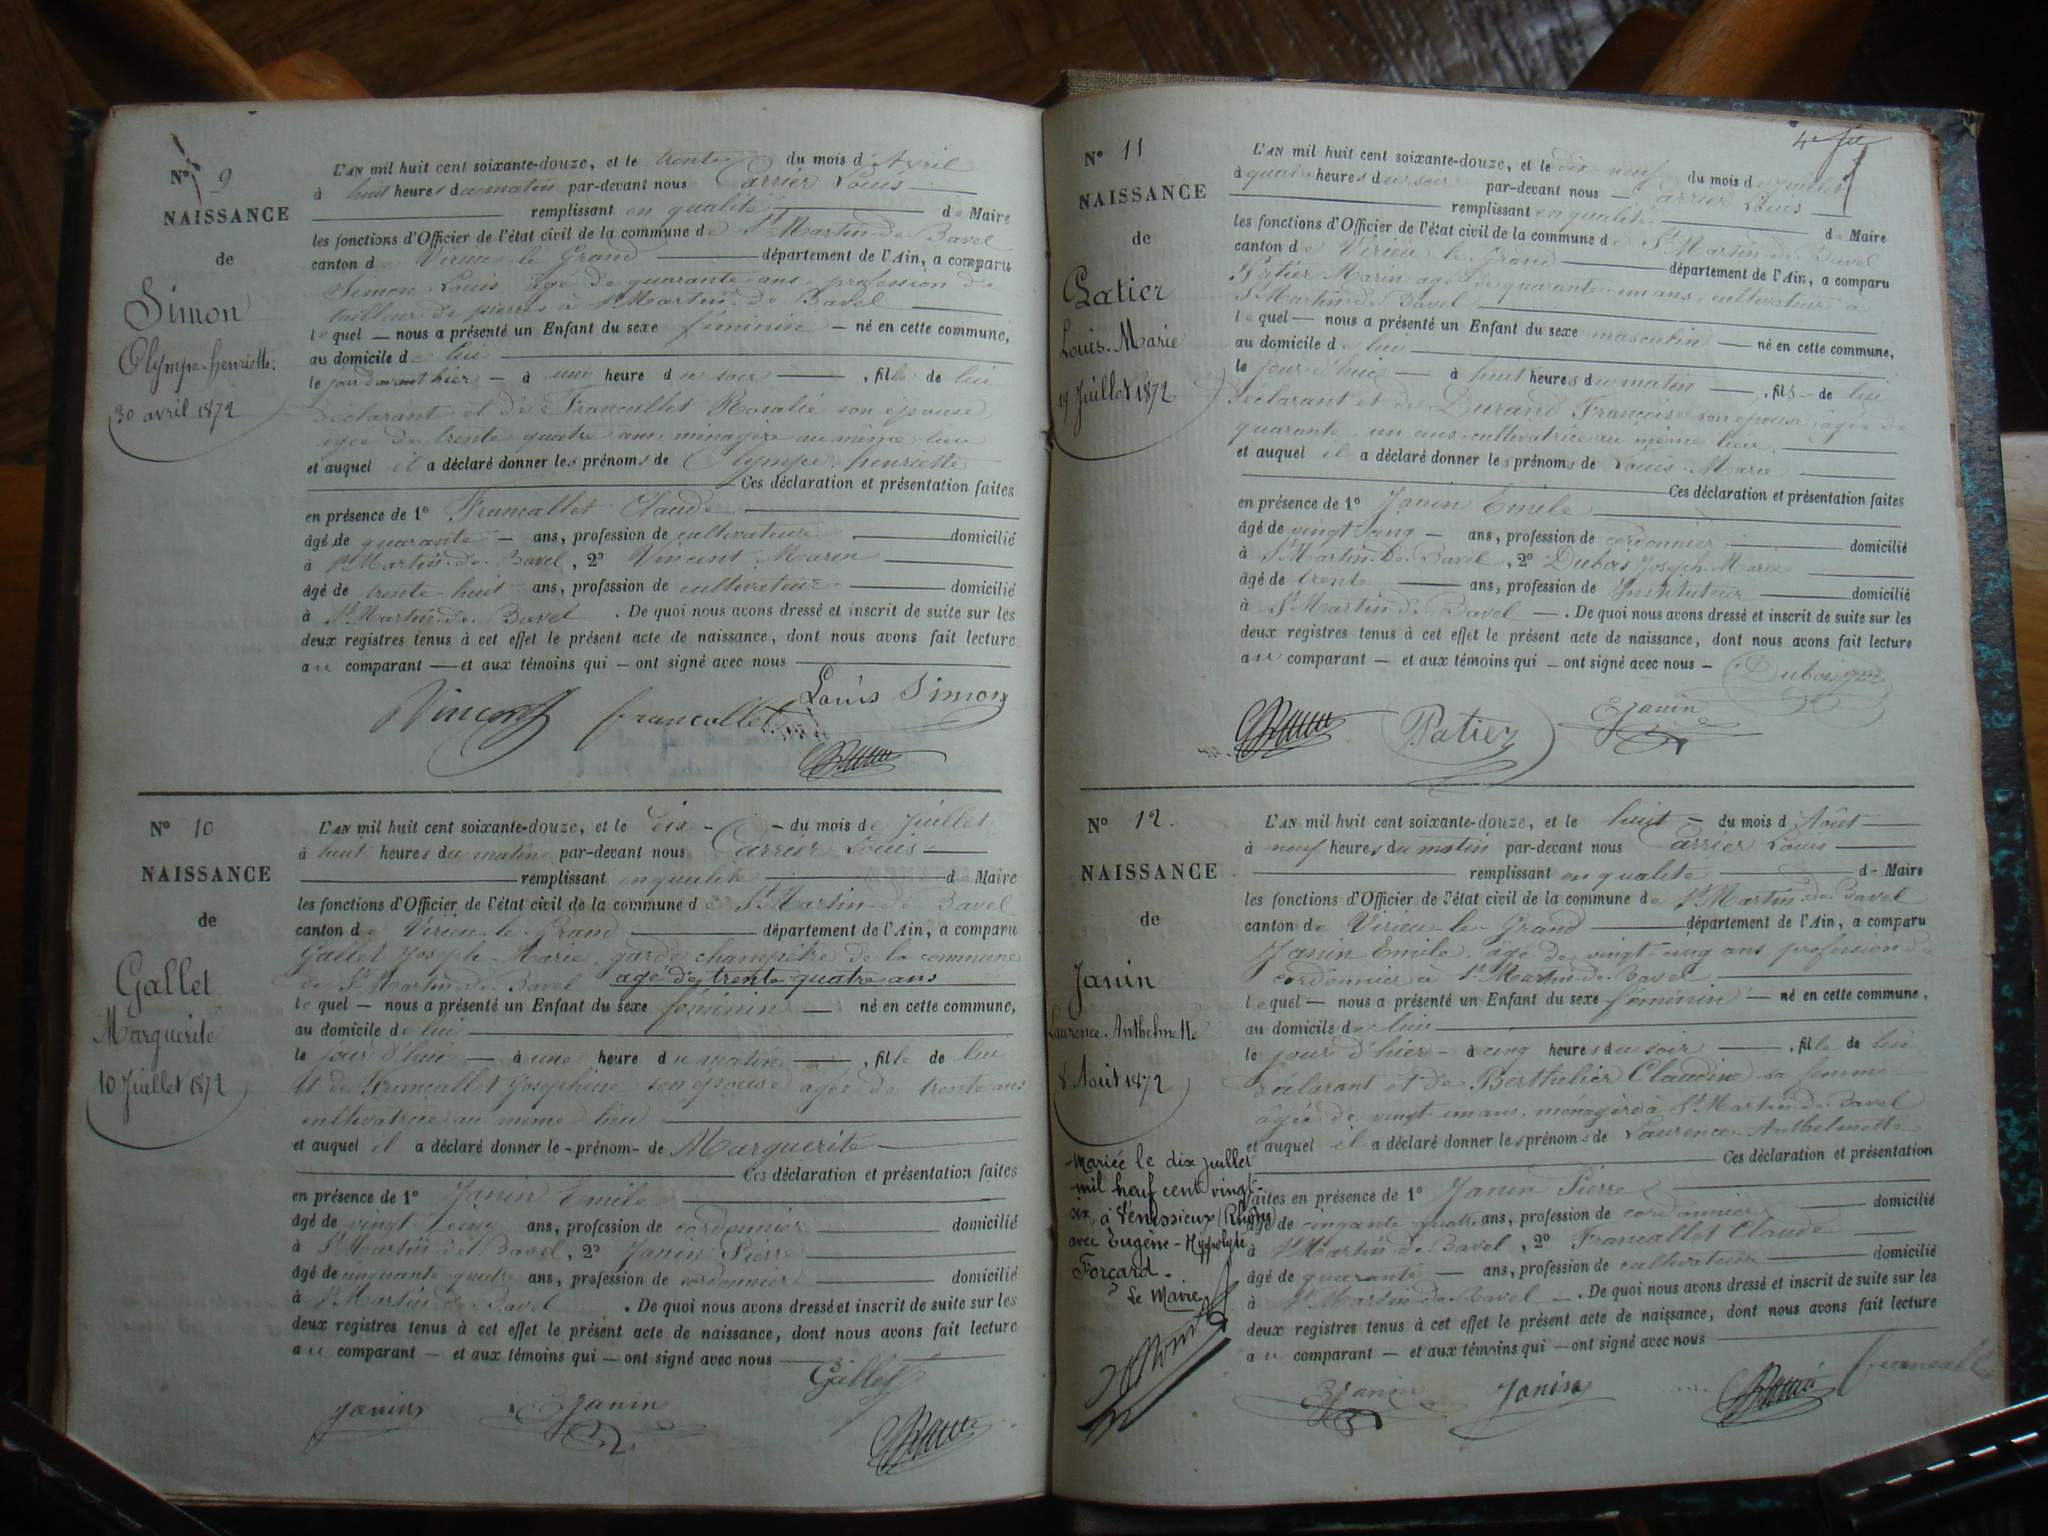 N° 9
NAISSANCE
de
Simon
Olympe-henriette.
30 avril 1872
L'AN mil huit cent soixante-douze, et le trente du mois d'Avril
à huit heures du matin par-devant nous Carrier Louis
remplissant en qualité de Maire
les fonctions d'Officier de l'état civil de la commune de St Martin-de-Bavel
canton de Virieu le Grand département de l'Ain, a comparu
Simon Louis âgé de quarante ans, profession de
tailleur de pierres à St Martin-de-Bavel
lequel nous a présenté un Enfant du sexe féminin né en cette commune,
au domicile de lui
le jour d'avant hier à une heure du soir, fille de lui
déclarant et de Francallet Rosalie son épouse
âgée de trente quatre ans, ménagère au même lieu
et auquel il a déclaré donner les prénoms de Olympe-henriette
Ces déclaration et présentation faites
en présence de 1° Francallet Claude
âgé de quarante ans, profession de cultivateur domicilié
à St Martin-de-Bavel, 2° Vincent Marin
âgé de trente huit ans, profession de cultivateur domicilié
à St Martin-de-Bavel. De quoi nous avons dressé et inscrit de suite sur les
deux registres tenus à cet effet le présent acte de naissance, dont nous avons fait lecture
au comparant et aux témoins qui ont signé avec nous
Louis Simon
Vincent francallet
N° 10
NAISSANCE
de
Gallet
Marguerite
10 Juillet 1872
L'AN mil huit cent soixante-douze, et le dix du mois de Juillet
à huit heures du matin par-devant nous Carrier Louis
remplissant en qualité de Maire
les fonctions d'Officier de l'état civil de la commune de St Martin-de-Bavel
canton de Virieu-le-Grand département de l'Ain, a comparu
Gallet Joseph-Marie, garde champêtre de la commune
de St Martin-de-Bavel agé de trente quatre ans
lequel nous a présenté un Enfant du sexe féminin né en cette commune,
au domicile de lui
le jour d'hui à une heure du matin, fille de lui
et de Francallet Joséphine son épouse âgée de trente ans
cultivatrice au même lieu
et auquel il a déclaré donner le prénom de Marguerite
Ces déclaration et présentation faites
en présence de 1° Janin Emile
âgé de vingt cinq ans, profession de cordonnier domicilié
à St Martin-de-Bavel, 2° Janin Pierre
âgé de cinquante quatre ans, profession de cordonnier domicilié
à St Martin-de-Bavel. De quoi nous avons dressé et inscrit de suite sur les
deux registres tenus à cet effet le présent acte de naissance, dont nous avons fait lecture
au comparant et aux témoins qui ont signé avec nous
Gallet
Janin EJanin
N° 11
NAISSANCE
de
Patier
Louis-Marie
19 Juillet 1872
L'AN mil huit cent soixante-douze, et le dix neuf du mois de Juillet
à quatre heures du soir par-devant nous Carrier Louis
remplissant en qualité de Maire
les fonctions d'Officier de l'état civil de la commune de St Martin-de-Bavel
canton de Virieu le Grand département de l'Ain, a comparu
Patier Marin agé de quarante-un ans, cultivateur à
St Martin-de-Bavel
lequel nous a présenté un Enfant du sexe masculin né en cette commune,
au domicile de lui
le jour d'hui à huit heures du matin, fils de lui
déclarant et de Durand Françoise son épouse, âgée de
quarante un ans, cultivatrice au même lieu
et auquel il a déclaré donner les prénoms de Louis-Marie
Ces déclaration et présentation faites
en présence de 1° Janin Emile
âgé de vingt cinq ans, profession de cordonnier domicilié
à St Martin-de-Bavel, 2° Dubois Joseph-Marie
âgé de trente ans, profession de Instituteur domicilié
à St Martin-de-Bavel. De quoi nous avons dressé et inscrit de suite sur les
deux registres tenus à cet effet le présent acte de naissance, dont nous avons fait lecture
au comparant et aux témoins qui ont signé avec nous
Patier EJanin
N° 12.
NAISSANCE
de
Janin
Laurence-Anthelmette
8 Août 1872
Mariée le dix juillet
mil neuf cent vingt-
six, à Vénissieux (Rhône)
avec Eugène-Hippolyte
Forçard.
Le Maire,
L'AN mil huit cent soixante-douze, et le huit du mois d'Août
à neuf heures du matin par-devant nous Carrier Louis
remplissant en qualité de Maire
les fonctions d'Officier de l'état civil de la commune de St Martin-de-Bavel
canton de Virieu-le-Grand département de l'Ain, a comparu
Janin Emile, âgé de vingt-cinq ans profession de
cordonnier à St Martin-de-Bavel
lequel nous a présenté un Enfant du sexe féminin né en cette commune,
au domicile de lui
le jour d'hier à cinq heures du soir, fille de lui
déclarant et de Berthelier Claudine sa femme
âgée de vingt-un ans, ménagère à St Martin-de-Bavel
et auquel il a déclaré donner les prénoms de Laurence-Anthelmette
Ces déclaration et présentation
faites en présence de 1° Janin Pierre domicilié
âgé de cinquante quatre ans, profession de cordonnier
à St Martin-de-Bavel, 2° Francallet Claude
âgé de quarante ans, profession de cultivateur domicilié
à St Martin-de-Bavel. De quoi nous avons dressé et inscrit de suite sur les
deux registres tenus à cet effet le présent acte de naissance, dont nous avons fait lecture
au comparant et aux témoins qui ont signé avec nous
EJanin Janin